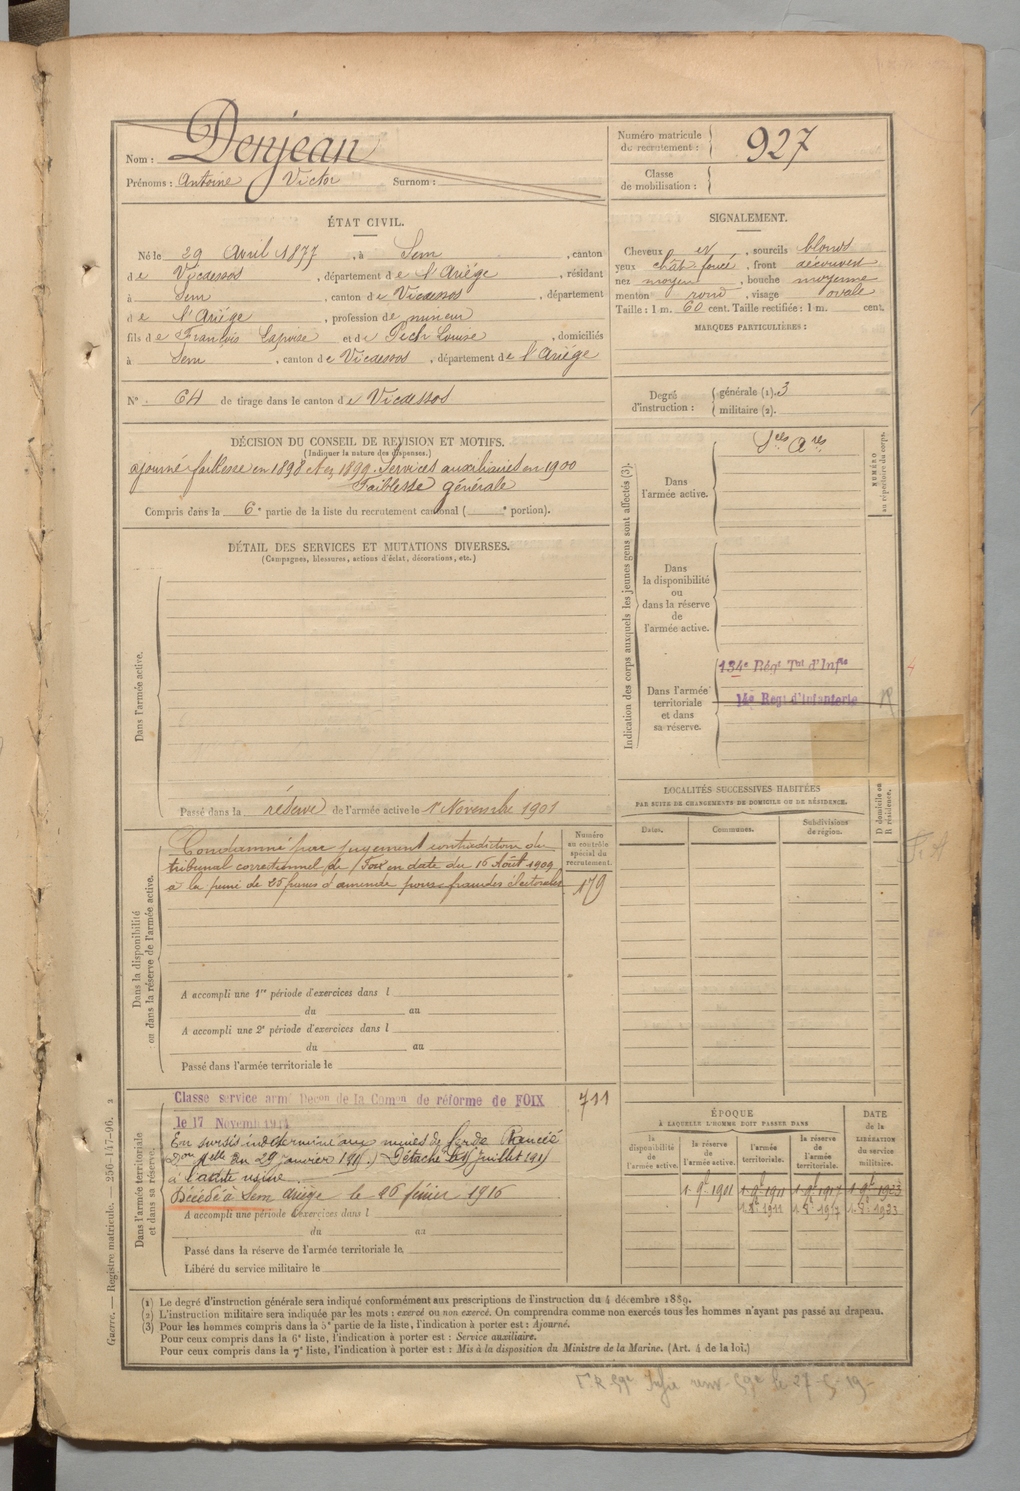 Nom : Denjean
Prénoms : Antoine Victor Surnom :
Numéro matricule du recrutement : 927
Classe de mobilisation :
ÉTAT CIVIL.
Né le 29 Avril 1877, à Sem, canton
de Vicdessos, département de l'Ariège, résidant
à Sem, canton de Vicdessos, département
de l'Ariège, profession de mineur
fils de François Lapoise et de Pech Louise, domiciliés
à Sem, canton de Vicdessos, département de l'Ariège
SIGNALEMENT.
Cheveux et, sourcils blonds
yeux chât. foncé, front découvert
nez moyen, bouche moyenne
menton rond, visage ovale
Taille : 1 m. 60 cent. Taille rectifiée : 1 m. cent.
MARQUES PARTICULIÈRES :
N° 64 de tirage dans le canton de Vicdessos
Degré d'instruction : générale (1). 3
militaire (2).
DÉCISION DU CONSEIL DE REVISION ET MOTIFS.
(Indiquer la nature des dispenses.)
ajourné faiblesse en 1898 et en 1899. Services auxiliaires en 1900
Faiblesse générale
Compris dans la 6e partie de la liste du recrutement cantonal ( e portion).
DÉTAIL DES SERVICES ET MUTATIONS DIVERSES.
(Campagnes, blessures, actions d'éclat, décorations, etc.)
Dans l'armée active.
Passé dans la réserve de l'armée active le 1er Novembre 1901
Indication des corps auxquels les jeunes gens sont affectés (3).
NUMÉRO au répertoire du corps.
Dans l'armée active.
Sces Ares
Dans la disponibilité ou dans la réserve de l'armée active.
Dans l'armée territoriale et dans sa réserve.
134e Régt Tal d'Infie
14e Regt d'Infanterie
LOCALITÉS SUCCESSIVES HABITÉES
PAR SUITE DE CHANGEMENTS DE DOMICILE OU DE RÉSIDENCE.
Dates. Communes. Subdivisions de région. D domicile ou R résidence.
Dans la disponibilité ou dans la réserve de l'armée active.
Condamné par jugement contradictoire du
tribunal correctionnel de Foix en date du 16 Août 1909
à la peine de 25 francs d'amende pour fraudes électorales
Numéro au contrôle spécial du recrutement.
179
A accompli une 1re période d'exercices dans l
du au
A accompli une 2e période d'exercices dans l
du au
Passé dans l'armée territoriale le
Dans l'armée territoriale et dans sa réserve.
Classe service armé Decon de la Comon de réforme de FOIX
le 17 Novemb 1914
711
En sursis indéterminé aux mines de fer de Rancié
Don Melle du 29 janvier 1915. Détaché le 1 Juillet 1915
à l'actite usine.
Décédé à Sem Ariège le 26 février 1916
A accompli une période d'exercices dans l
du au
Passé dans la réserve de l'armée territoriale le
Libéré du service militaire le
ÉPOQUE
À LAQUELLE L'HOMME DOIT PASSER DANS
la disponibilité de l'armée active. la réserve de l'armée active. l'armée territoriale. la réserve de l'armée territoriale.
DATE de la LIBÉRATION du service militaire.
1 9e 1901 1 9e 1911 1 9e 1917 1 9e 1923
1 8e 1911 1 8e 1917 1 8e 1923
(1) Le degré d'instruction générale sera indiqué conformément aux prescriptions de l'instruction du 4 décembre 1889.
(2) L'instruction militaire sera indiquée par les mots : exercé ou non exercé. On comprendra comme non exercés tous les hommes n'ayant pas passé au drapeau.
(3) Pour les hommes compris dans la 5e partie de la liste, l'indication à porter est : Ajourné.
Pour ceux compris dans la 6e liste, l'indication à porter est : Service auxiliaire.
Pour ceux compris dans la 7e liste, l'indication à porter est : Mis à la disposition du Ministre de la Marine. (Art. 4 de la loi.)
Guerre. — Registre matricule. — 256-117-96.